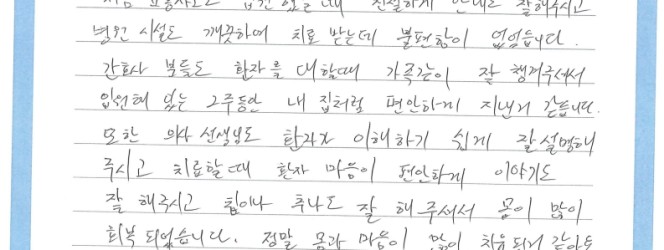 입원 했을때 친절하게 안내도 잘해주시고
병원 시설도 깨끗하여 치료 받는데 불편함이 없었습니다.
간호사 분들도 환자를 대할때 가족같이 잘 챙겨주셔서
입원해 있는 2주동안 내 집처럼 편안하게 지낸거 같습니다.
또한 의사 선생님도 환자가 이해하기 쉽게 잘 설명해
주시고 치료할때 환자 마음이 편안하게 이야기도
잘 해주시고 침이나 추나도 잘 해주셔서 몸이 많이
회복 되었습니다. 정말 몸과 마음이 많이 치유 된거 같아